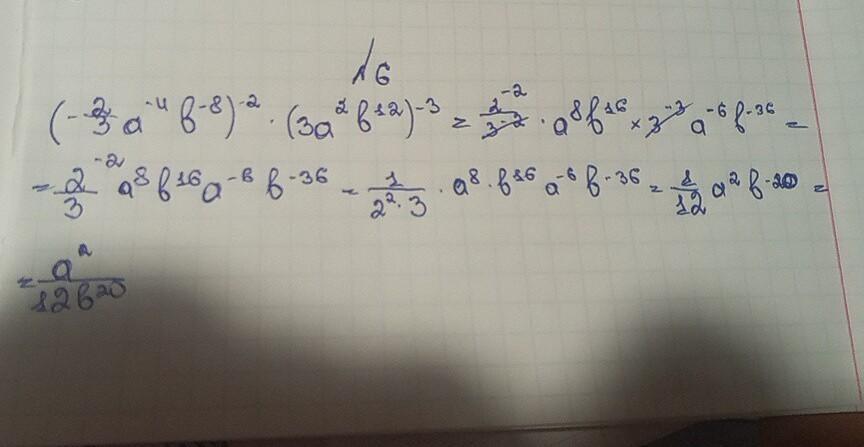 №6
(-2/3 a⁻⁴ b⁻⁸)⁻² · (3a² b¹²)⁻³ = 2⁻²/3⁻² · a⁸b¹⁶ × 3⁻³ a⁻⁶ b⁻³⁶ =
= 2⁻²/3 a⁸b¹⁶a⁻⁶ b⁻³⁶ = 1/2²·3 · a⁸·b¹⁶ a⁻⁶b⁻³⁶ = 1/12 a² b⁻²⁰ =
= a²/12b²⁰